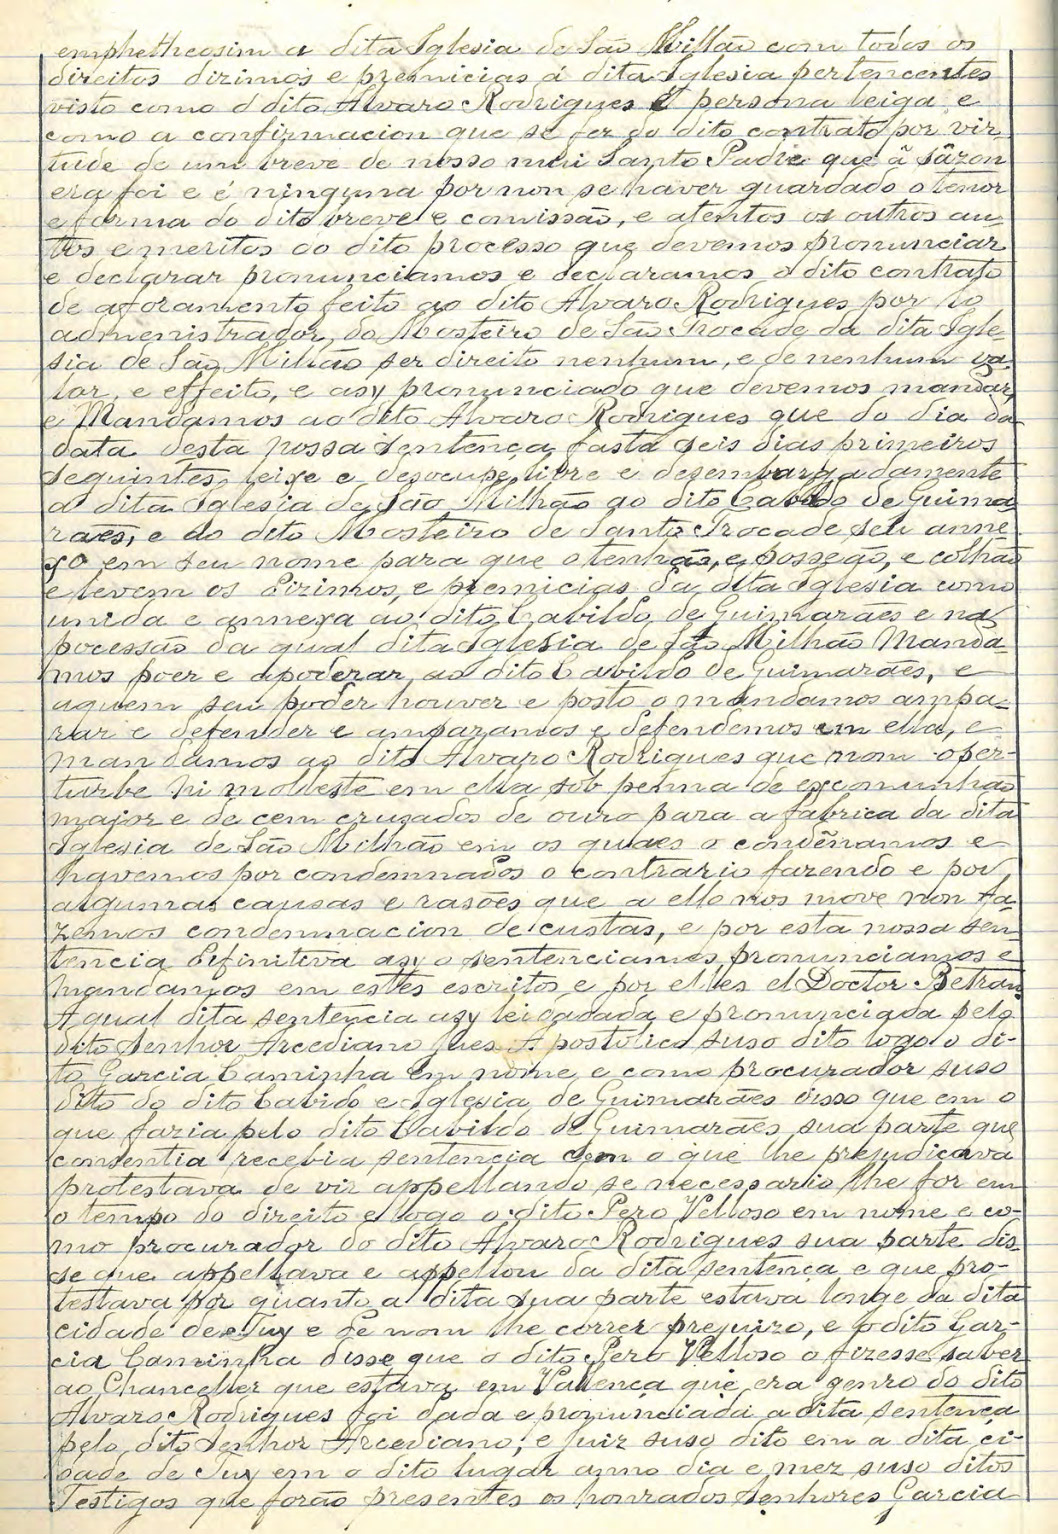 emphetheosim a dita Iglesia de São Millão com todos os
direitos dizimos e premicias á dita Iglesia pertencentes
visto como o dito Alvaro Rodrigues é persona leiga, e
como a confirmacion que se fez do dito contrato por vir-
tude de um breve de nosso mui Santo Padre que â sâzon
era foi e é ninguna por non se haver guardado o tenor
e forma do dito breve e comissão, e atentos os outros au-
tos e meritos do dito processo que devemos pronunciar
e declarar pronunciamos e declaramos o dito contrato
de aforamento feito ao dito Alvaro Rodrigues por
admenistrador do Mosteiro de São Trocade da dita Igle-
sia de São Milhão ser direito nenhum, e de nenhum va-
lor, e effeito, e asy pronunciado que devemos mandar,
e Mandamos ao dito Alvaro Rodrigues que do dia da
data desta nossa sentença fasta seis dias primeiros
seguintes, leixe e desocupe, livre e dezembargadamente
a dita Iglesia de São Milhão ao dito Cabido de Guima-
rães, e do dito Mosteiro de Santo Trocade seu anne-
xo em seu nome para que o tenhão, e posseão, e colhão
e levem os Dizimos, e premicias da dita Iglesia como
unida e annexa ao dito Cavildo de Guimarães e na
pocessão da qual dita Iglesia de São Milhão Manda-
mos poer e apoderar ao dito Cavildo de Guimarães, e
aquem seu poder houver e posto o mandamos ampa-
rar e defender e amparamos e defendemos em ella, e
mandamos ao dito Alvaro Rodrigues que nom o per-
turbe ni molleste em ella sob penna de excomunhão
major e de cem cruzados de ouro para a fabrica da dita
Iglesia de São Milhão em os quaes o condênamos e
havemos por condemnados o contrario fazendo e por
algumas causas e rasões que a ello nos move non fa-
zemos condemnacion de custas, e por esta nossa sen-
tencia Definitiva asy o sentenciamos pronunciamos e
mandamos em estes escritos e por elles el Doctor Betran
A qual dita sentencia asy leida dada e pronunciada pelo
dito Senhor Arcediano Jues Apostolico suso dito logo o di-
to Garcia Caminha em nome e como procurador suso
dito do dito Cabido e Iglesia de Guimarães disso que em o
que fazia pelo dito Cavildo de Guimarães sua parte que
consentia recebia sentencia e em o que lhe prejudicava
protestava de vir appellando se necessario lhe for em
o tempo do direito e logo o dito Pero Velloso em nome e co-
mo procurador do dito Alvaro Rodrigues sua parte dis-
se que appellava e appellou da dita sentença e que pro-
testava por quanto a dita sua parte estava longe da dita
cidade de Tuy e de nom lhe correr prejuizo, e o dito Gar-
cia Caminha disse que o dito Pero Velloso o fizesse saber
ao Chanceller que estava em Vallença que era genro do dito
Alvaro Rodrigues foi dada e pronunciada a dita sentença
pelo dito Senhor Arcediano, e juiz suso dito em a dita ci-
dade de Tuy em o dito lugar anno dia e mez suso ditos
Testigos que forão presentes os honrados senhores Garcia